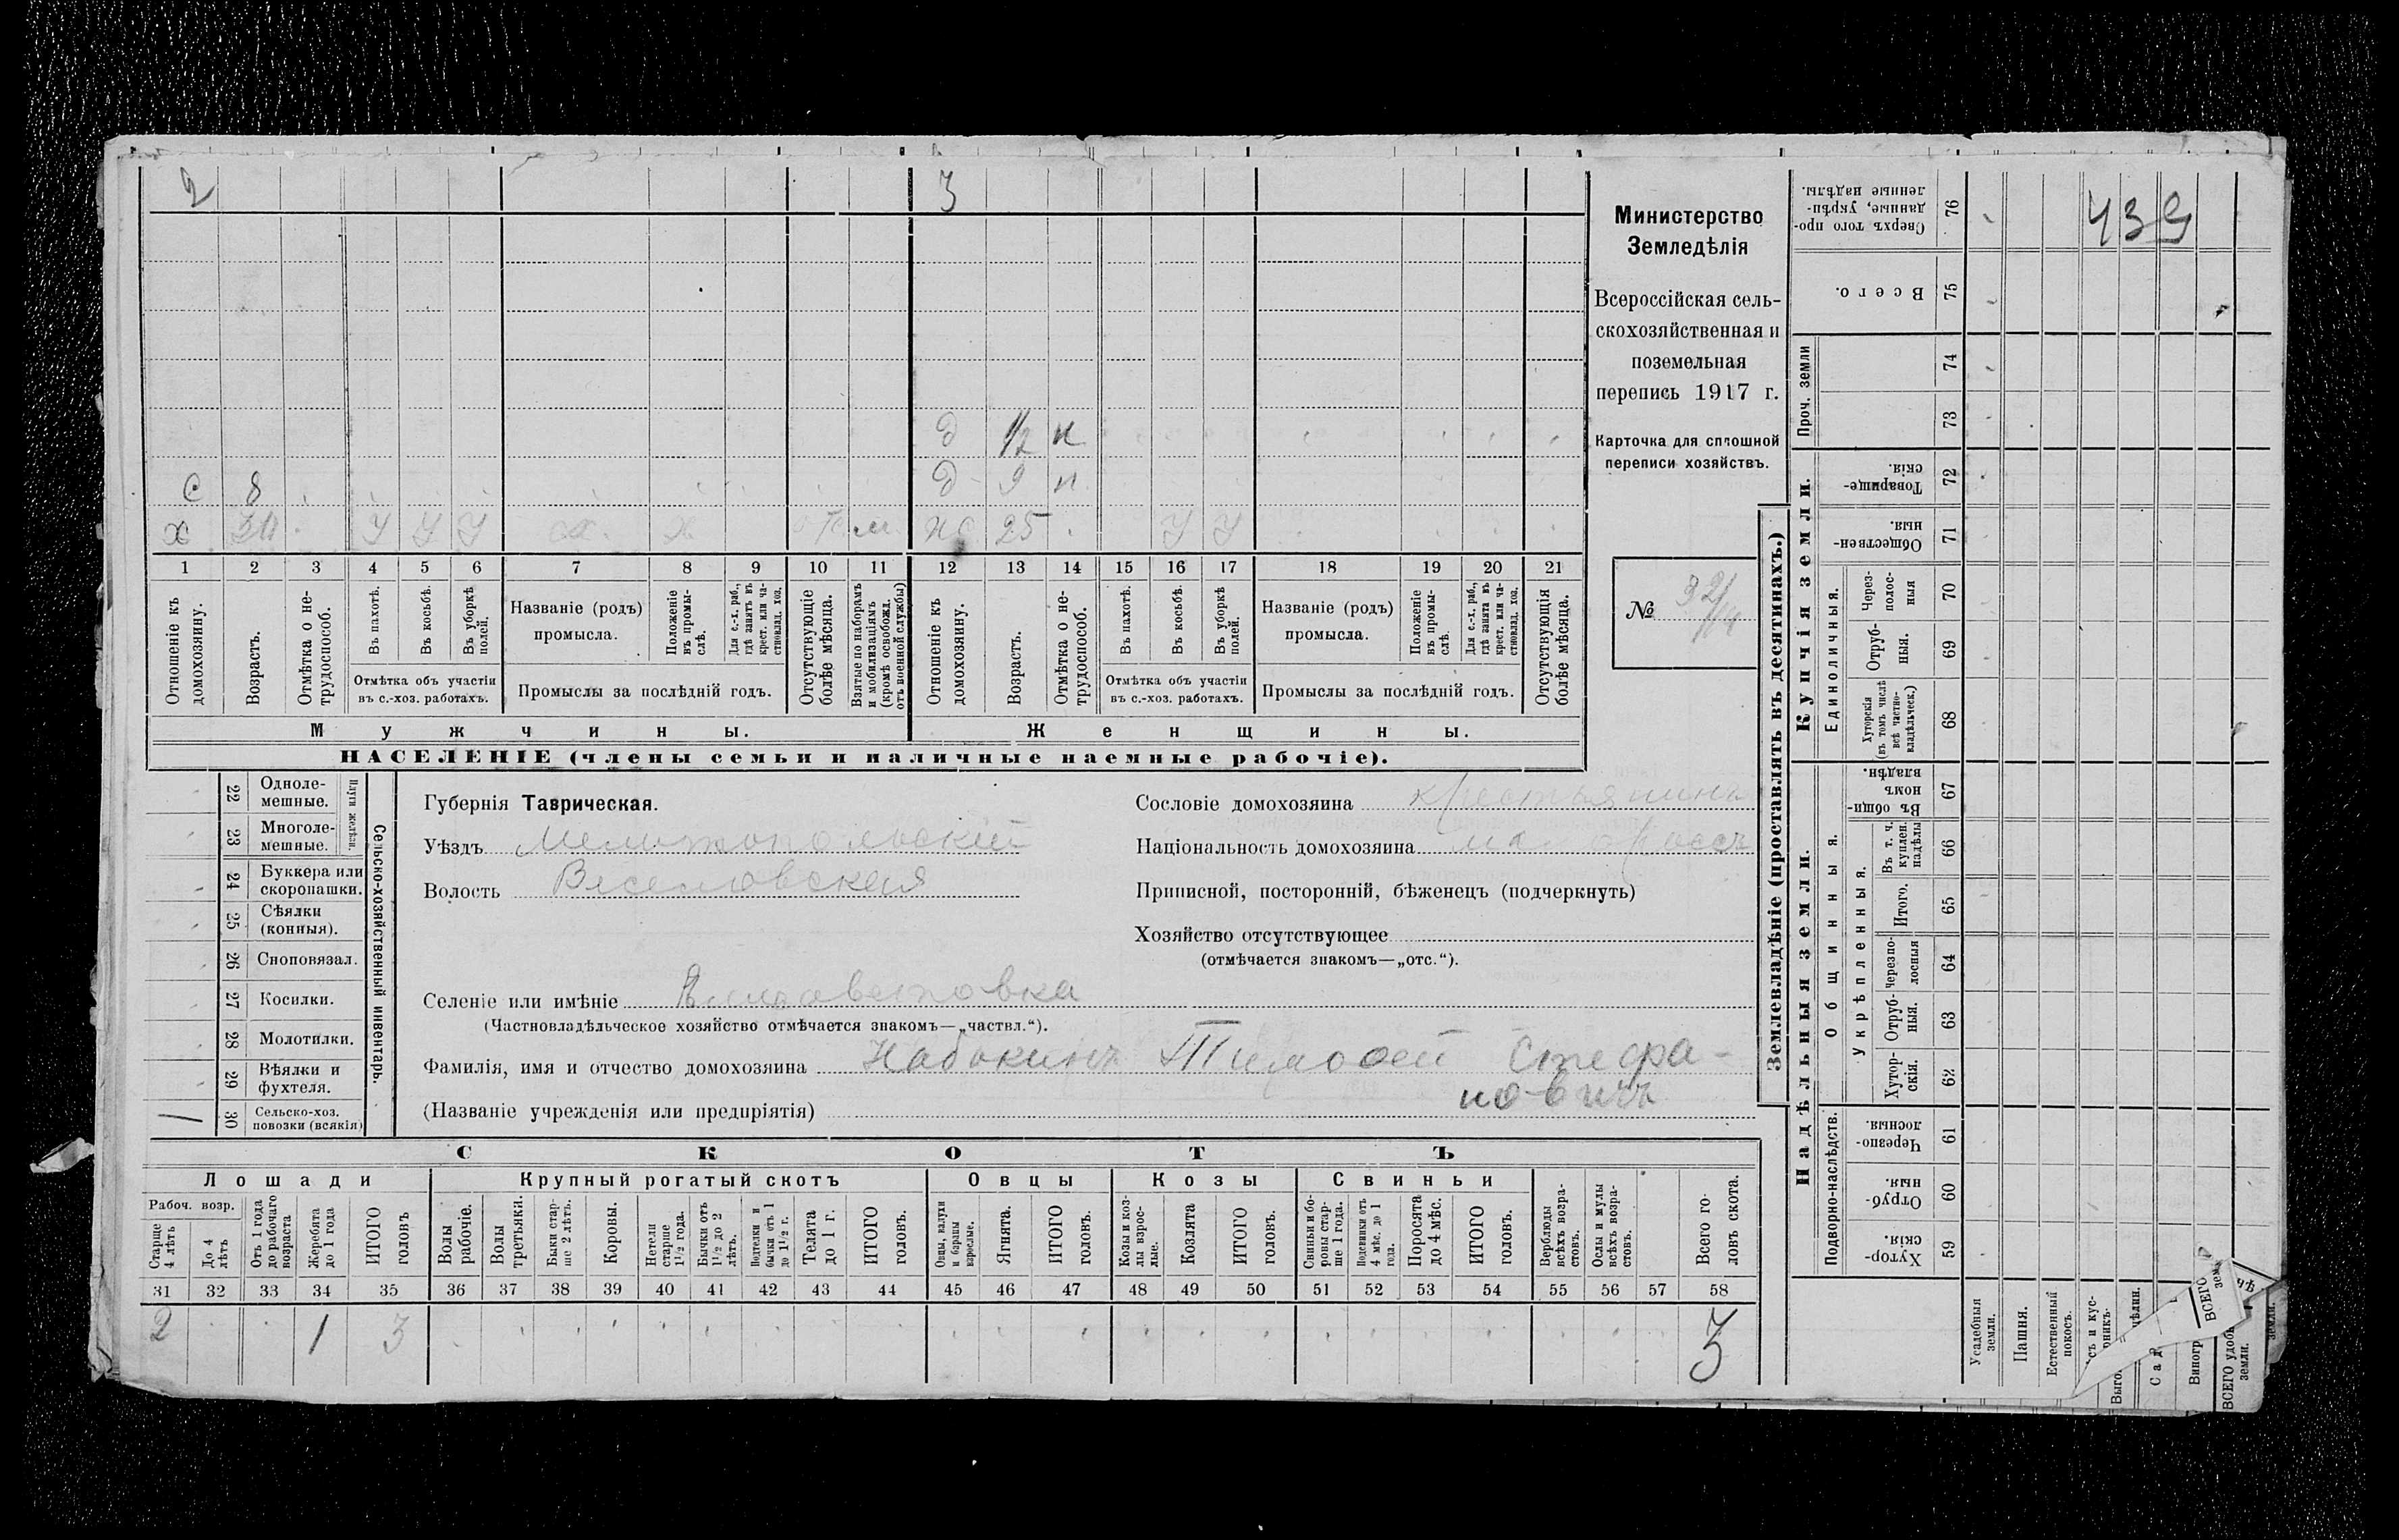 2
3
д 1/2 н
с 8
д 9 н
х У У У
жс 25 У У
1 2 3 4 5 6 7 8 9 10 11 12 13 14 15 16 17 18 19 20 21
Отношеніе къ домохозяину.
Возрастъ.
Отмѣтка о нетрудоспособ.
Въ пахотѣ.
Въ косьбѣ.
Въ уборкѣ полей.
Отмѣтка объ участіи
въ с.-хоз. работахъ.
Названіе (родъ)
промысла.
Положеніе въ промыслѣ.
Для с.-х. раб., гдѣ занятъ въ крест. или частновлад. хоз.
Промыслы за послѣдній годъ.
Отсутствующіе болѣе мѣсяца.
Взятые по наборамъ и мобилизаціяхъ (кромѣ освобожд. отъ военной службы)
Отношеніе къ домохозяину.
Возрастъ.
Отмѣтка о нетрудоспособ.
Въ пахотѣ.
Въ косьбѣ.
Въ уборкѣ полей.
Отмѣтка объ участіи
въ с.-хоз. работахъ.
Названіе (родъ)
промысла.
Положеніе въ промыслѣ.
Для с.-х. раб., гдѣ занята въ крест. или частновлад. хоз.
Промыслы за послѣдній годъ.
Отсутствующія болѣе мѣсяца.
Мужчины.
Женщины.
НАСЕЛЕНІЕ (члены семьи и наличные наемные рабочіе).
Министерство
Земледѣлія
Всероссійская сель-
скохозяйственная и
поземельная
перепись 1917 г.
Карточка для сплошной
переписи хозяйствъ.
№ 32/
22 Одноле-
мешные.
23 Многоле-
мешные.
Плуги желѣзн.
24 Буккера или
скоропашки.
25 Сѣялки
(конныя).
26 Сноповязал.
27 Косилки.
28 Молотилки.
29 Вѣялки и
фухтеля.
1 30 Сельско-хоз.
повозки (всякія)
Сельско-хозяйственный инвентарь.
Губернія Таврическая.
Уѣздъ Мелитопольскій
Волость Веселовская
Селеніе или имѣніе Елизаветовка
(Частновладѣльческое хозяйство отмѣчается знакомъ—„частвл.“).
Фамилія, имя и отчество домохозяина Набокинъ Тимофей Стефа-
новичъ
(Названіе учрежденія или предпріятія)
Сословіе домохозяина крестьянинъ
Національность домохозяина
Приписной, посторонній, бѣженецъ (подчеркнуть)
Хозяйство отсутствующее
(отмѣчается знакомъ—„отс.“).
СКОТЪ
Лошади
Крупный рогатый скотъ
Овцы
Козы
Свиньи
Рабоч. возр.
Старше 4 лѣтъ
До 4 лѣтъ
Отъ 1 года до рабочаго возраста
Жеребята до 1 года
ИТОГО головъ
Волы рабочіе.
Волы третьяки.
Быки старше 2 лѣтъ.
Коровы.
Нетели старше 1 1/2 года.
Бычки отъ 1 1/2 до 2 лѣтъ.
Подтелки и бычки отъ 1 до 1 1/2 г.
Телята до 1 г.
ИТОГО головъ.
Овцы, валухи и бараны взрослые.
Ягнята.
ИТОГО головъ.
Козы и козлы взрослые.
Козлята
ИТОГО головъ.
Свиньи и боровы старше 1 года.
Подсвинки отъ 4 мѣс. до 1 года.
Поросята до 4 мѣс.
ИТОГО головъ.
Верблюды всѣхъ возрастовъ.
Ослы и мулы всѣхъ возрастовъ.
Всего головъ скота.
31 32 33 34 35 36 37 38 39 40 41 42 43 44 45 46 47 48 49 50 51 52 53 54 55 56 57 58
2 1 3 3
Землевладѣніе (проставлять въ десятинахъ.)
Надѣльныя земли.
Купчія земли.
Проч. земли
Подворно-наслѣдств.
Общинныя.
Укрѣпленныя.
Единоличныя.
Сверхъ того проданные, укрѣпленные надѣлы. 76
439
Всего. 75
74
73
Товарищескія. 72
Общественныя. 71
Черезполосныя 70
Отрубныя. 69
Хуторскія (въ томъ числѣ всѣ частновладѣльческ.) 68
Въ общинномъ владѣн. 67
Въ т. ч. куплен. надѣлы 66
Итого. 65
Черезполосныя 64
Отрубныя. 63
Хуторскія. 62
Черезполосныя. 61
Отрубныя. 60
Хуторскія. 59
Усадебныя земли.
Пашня.
Естественный покосъ.
Выго
Сад
Виногр
ВСЕГО удоб
земли.
ВСЕГО